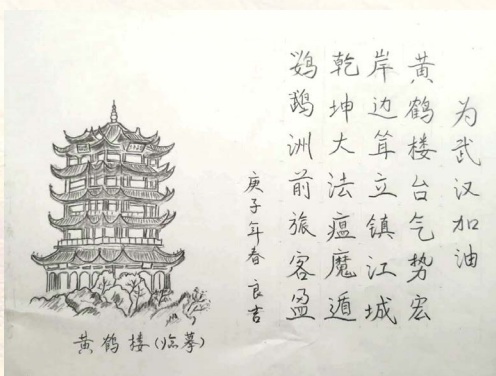 为武汉加油
黄鹤楼台气势宏
岸边耸立镇江城
乾坤大法瘟魔遁
鹦鹉洲前旅客盈
庚子年春 良吉
黄鹤楼(临摹)